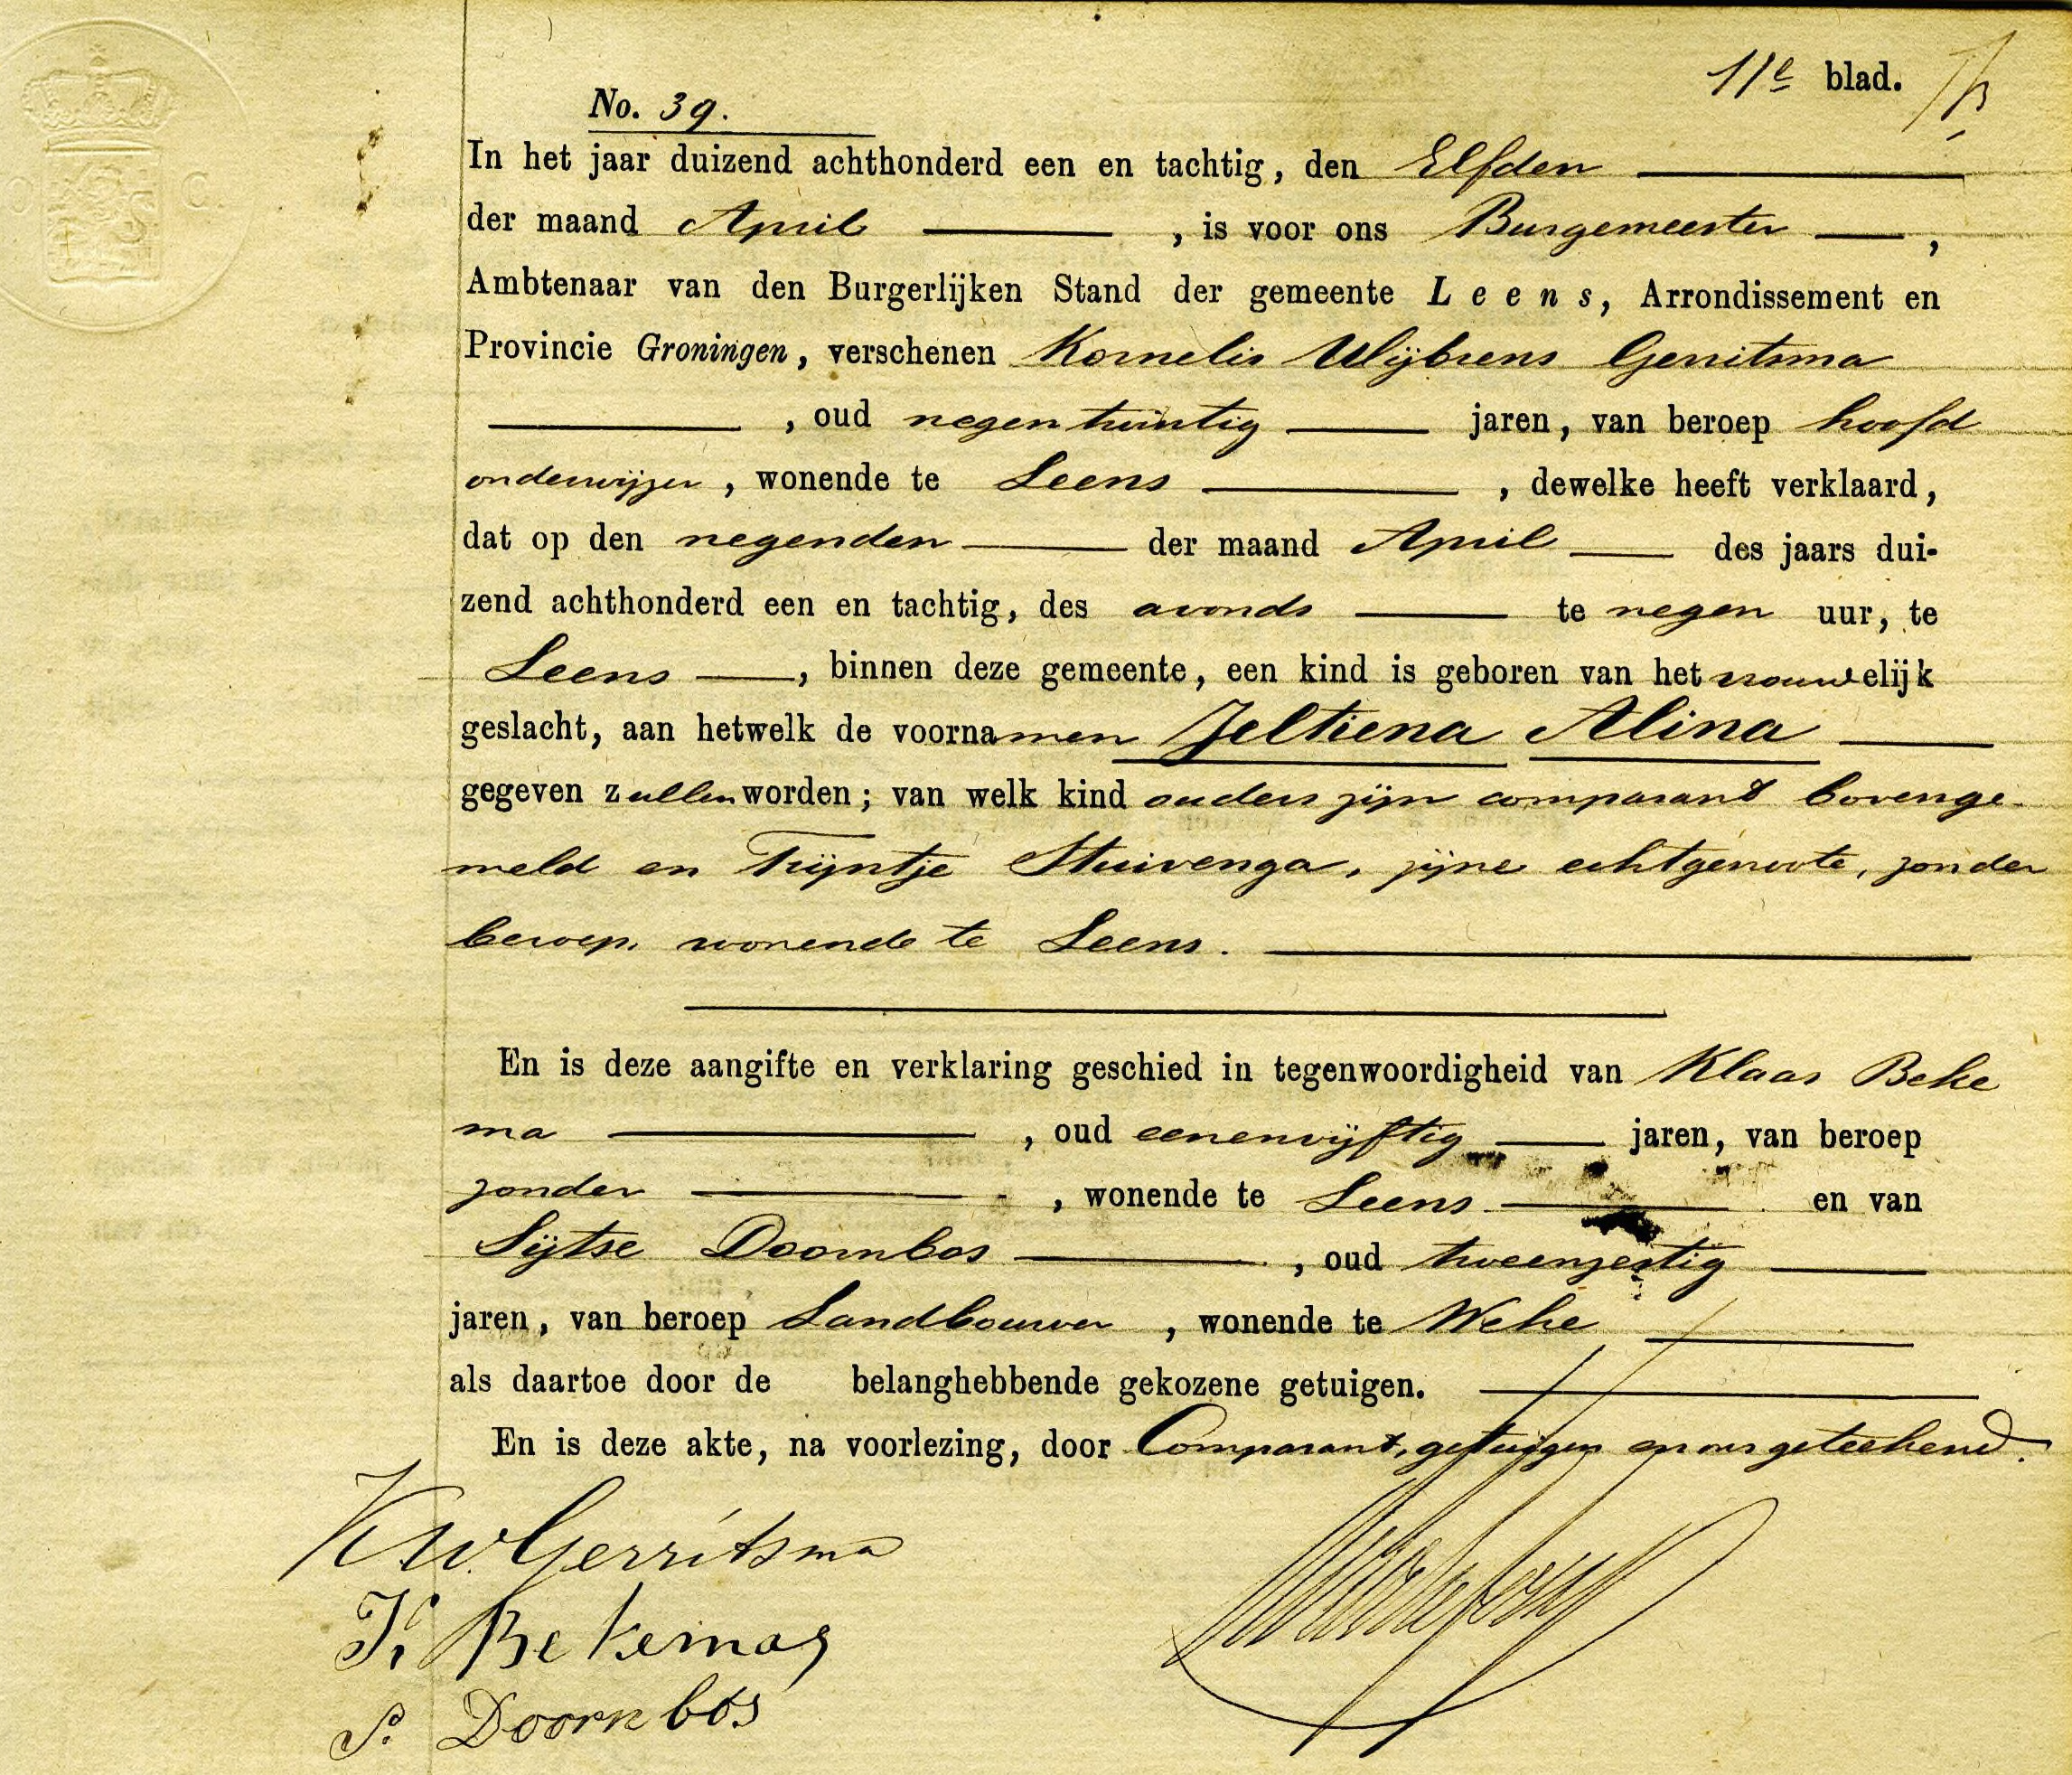 11e blad.
No. 39.
In het jaar duizend achthonderd een en tachtig, den Elfden
der maand April, is voor ons Burgemeester,
Ambtenaar van den Burgerlijken Stand der gemeente Leens, Arrondissement en
Provincie Groningen, verschenen Kornelis Wijbrens Gerritsma
, oud negentwintig jaren, van beroep hoofd
onderwijzer, wonende te Leens, dewelke heeft verklaard,
dat op den negenden der maand April des jaars dui-
zend achthonderd een en tachtig, des avonds te negen uur, te
Leens, binnen deze gemeente, een kind is geboren van het vrouwelijk
geslacht, aan hetwelk de voornamen Jeltiena Alina
gegeven zullen worden; van welk kind ouders zijn comparant bovenge-
meld en Trijntje Stuivenga, zijne echtgenoote, zonder
beroep, wonende te Leens.
En is deze aangifte en verklaring geschied in tegenwoordigheid van Klaas Beke
ma, oud eenenvijftig jaren, van beroep
zonder, wonende te Leens en van
Sijtse Doornbos, oud tweenzestig
jaren, van beroep Landbouwer, wonende te Wehe
als daartoe door de belanghebbende gekozene getuigen.
En is deze akte, na voorlezing, door Comparant, getuigen en ons geteekend.
K W Gerritsma
K Bekema
S. Doornbos